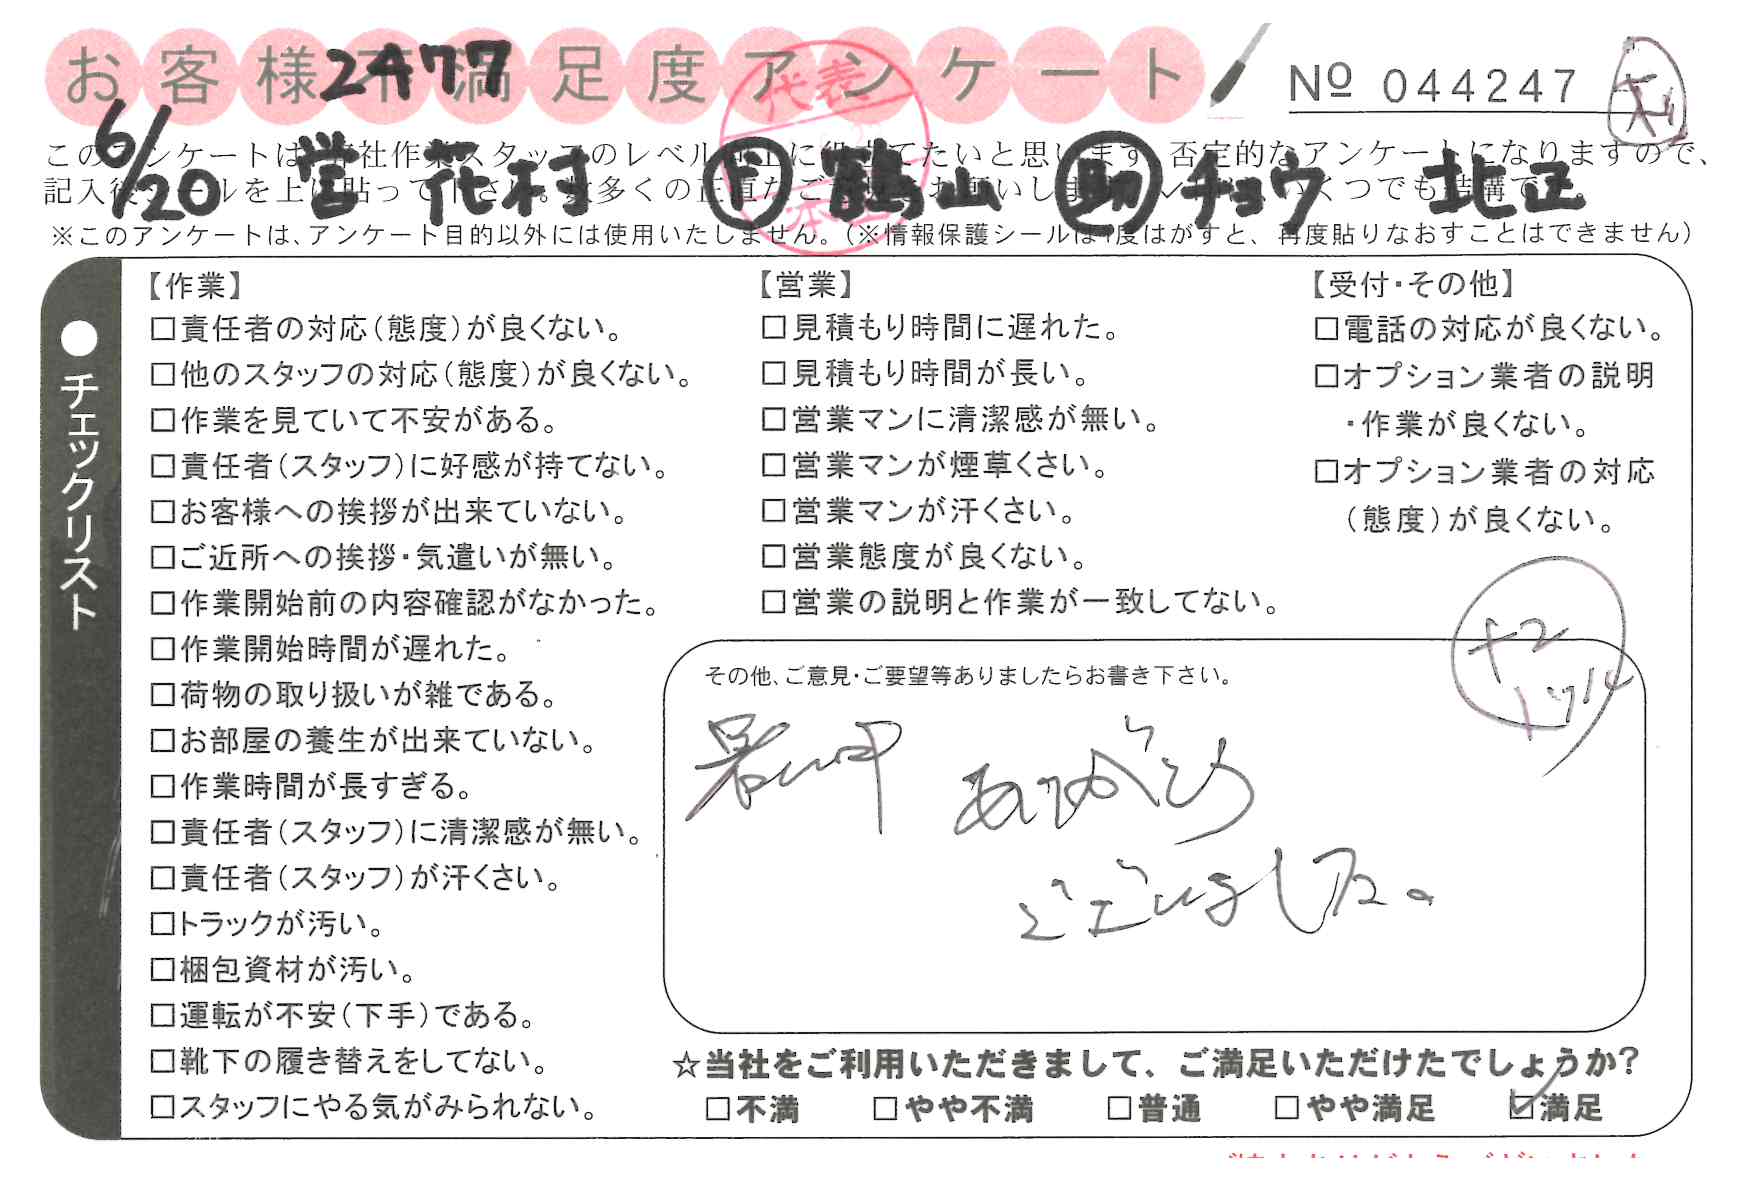 お客様不満足度アンケート
2477
№ 044247
6/20 営 花村 鶴山 助 チョウ 北正
このアンケートは、弊社作業スタッフのレベル向上に役立てたいと思います。否定的なアンケートになりますので、
記入後シールを上に貼って下さい。数多くの正直なご意見をお願いします。いくつでも結構です。
※このアンケートは、アンケート目的以外には使用いたしません。(※情報保護シールは1度はがすと、再度貼りなおすことはできません)
代表
本社
●チェックリスト
【作業】
□責任者の対応(態度)が良くない。
□他のスタッフの対応(態度)が良くない。
□作業を見ていて不安がある。
□責任者(スタッフ)に好感が持てない。
□お客様への挨拶が出来ていない。
□ご近所への挨拶・気遣いが無い。
□作業開始前の内容確認がなかった。
□作業開始時間が遅れた。
□荷物の取り扱いが雑である。
□お部屋の養生が出来ていない。
□作業時間が長すぎる。
□責任者(スタッフ)に清潔感が無い。
□責任者(スタッフ)が汗くさい。
□トラックが汚い。
□梱包資材が汚い。
□運転が不安(下手)である。
□靴下の履き替えをしてない。
□スタッフにやる気がみられない。
【営業】
□見積もり時間に遅れた。
□見積もり時間が長い。
□営業マンに清潔感が無い。
□営業マンが煙草くさい。
□営業マンが汗くさい。
□営業態度が良くない。
□営業の説明と作業が一致してない。
【受付・その他】
□電話の対応が良くない。
□オプション業者の説明
・作業が良くない。
□オプション業者の対応
(態度)が良くない。
その他、ご意見・ご要望等ありましたらお書き下さい。
暑い中 ありがとう
ございました。
☆当社をご利用いただきまして、ご満足いただけたでしょうか?
□不満 □やや不満 □普通 □やや満足 ☑満足